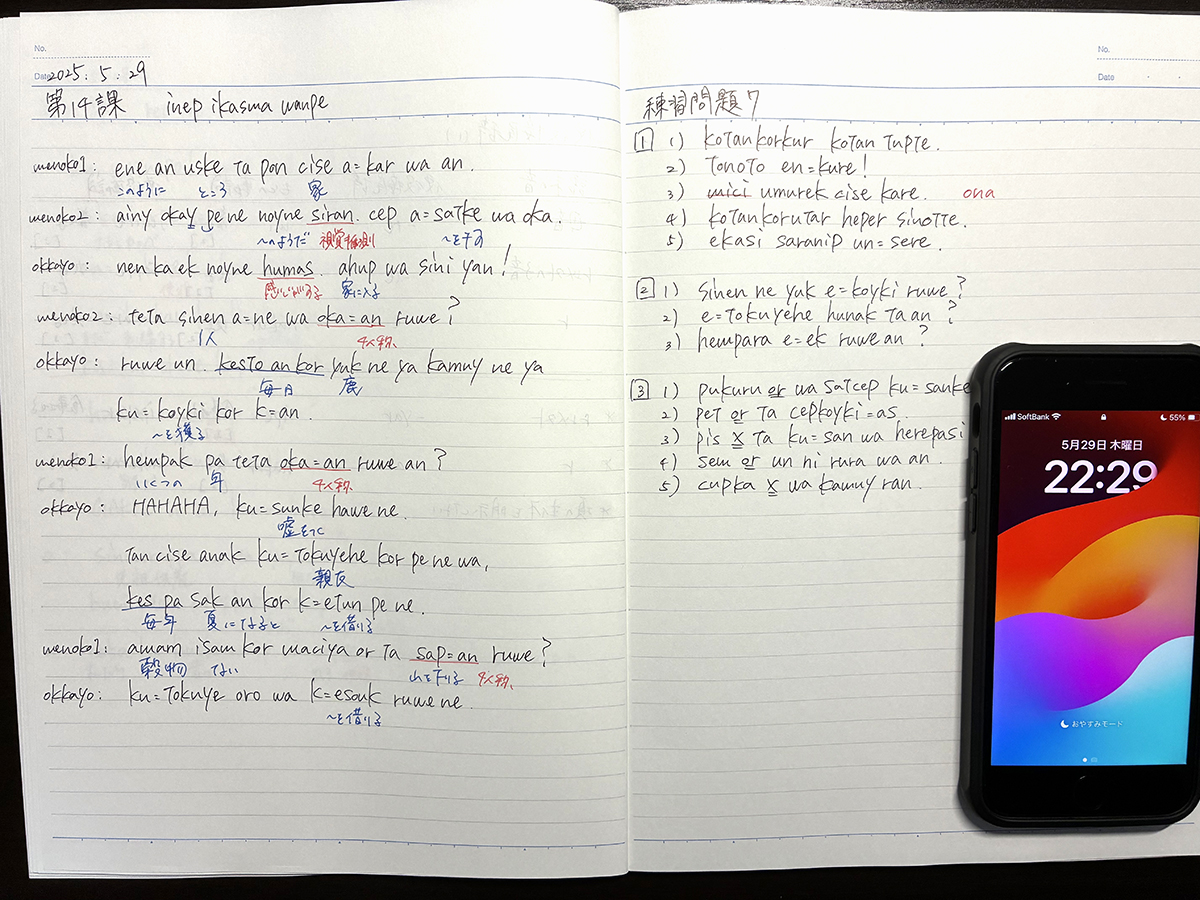 No.
Date 2025. 5. 29
第14課 inep ikasma wanpe
menoko1: ene an uske ta pon cise a=kar wa an.
このように ところ 家
menoko2: ainu okay pe ne noyne siran. cep a=satke wa oka.
〜のようだ 視覚推測 〜を干す
okkayo: nen ka ek noyne humas. ahup wa sini yan!
感じがする 家に入る
menoko2: teta sinen a=ne wa oka=an ruwe?
1人 4人称
okkayo: ruwe un. kesto an kor yuk ne ya kamuy ne ya
毎日 鹿
ku=koyki kor k=an.
〜を獲る
menoko1: hempak pa teta oka=an ruwe an?
いくつの 年 4人称
okkayo: HAHAHA, ku=sunke hawe ne.
嘘をつく
Tan cise anak ku=Tokuyehe kor pe ne wa,
親友
kes pa sak an kor k=etun pe ne.
毎年 夏になると 〜を借りる
menoko1: amam isam kor maciya or ta sap=an ruwe?
穀物 ない 山を下りる 4人称
okkayo: ku=Tokuye oro wa k=esouk ruwe ne.
〜を借りる
No.
Date
練習問題7
1 1) kotankorkur kotan tupte.
2) Tonoto en=kure!
3) mici umurek cise kare. ona
4) kotankorutar heper sinotte.
5) ekasi saranip un=sere.
2 1) sinen ne yuk e=koyki ruwe?
2) e=Tokuyehe hunak ta an?
3) hempara e=ek ruwe an?
3 1) pukuru or wa satcep ku=sanke
2) pet or ta cepkoyki=as.
3) pis x ta ku=san wa herepasi
4) sem or un ni rura wa an.
5) cupka x wa kamuy ran.
SoftBank 55%
5月29日 木曜日
22:29
おやすみモード